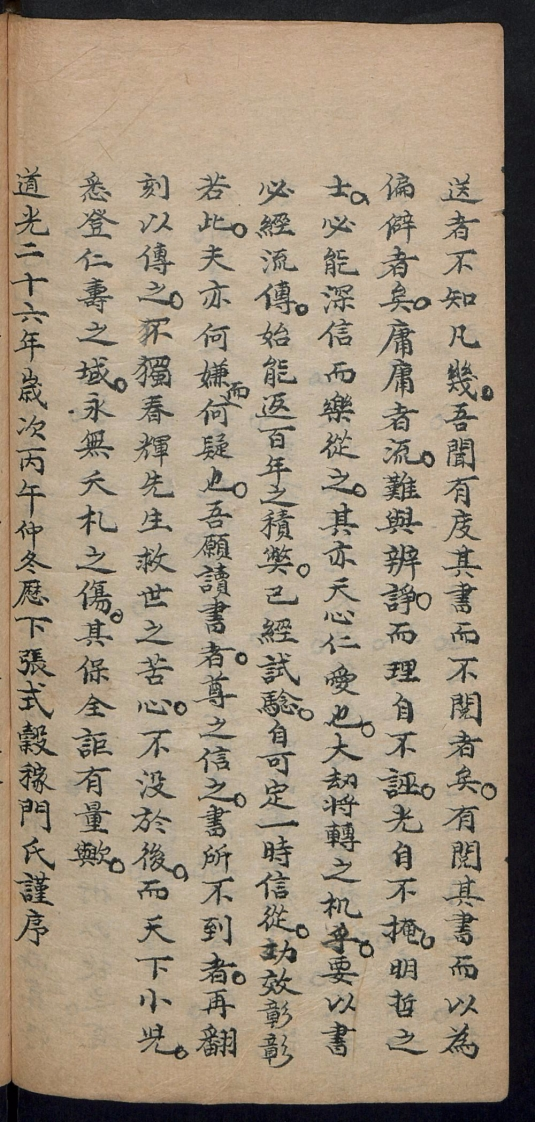 送者不知凡幾。吾聞有庋其書而不閱者矣。有閱其書而以為
偏僻者矣。庸庸者流。難與辨諍。而理自不誣。光自不掩。明哲之
士。必能深信而樂從之。其亦天心仁愛也。大劫將轉之机乎。要以書
必經流傳。始能返百年之積獘。已經試驗。自可定一時信從。功效彰彰
若此。夫亦何嫌而何疑也。吾願讀書者。尊之信之。書所不到者。再翻
刻以傳之。不獨春輝先生救世之苦心。不没於後。而天下小児。
悉登仁壽之域。永無夭札之傷。其保全詎有量歟。
道光二十六年歲次丙午仲冬歷下張式穀稼門氏謹序